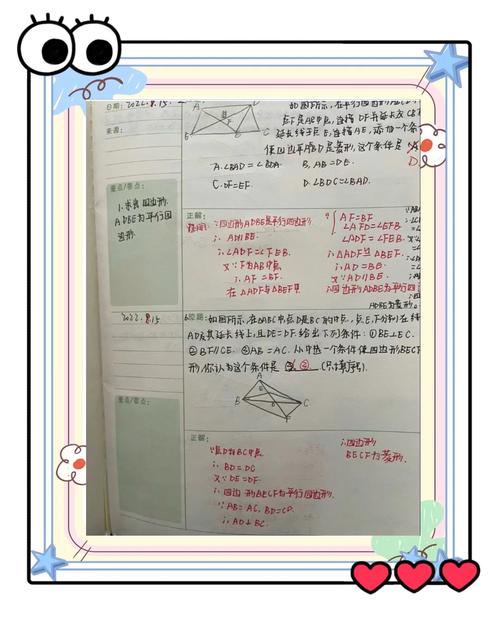 日期: 2022.8.15.
来源:
如图所示,在平行四边形ABCD中
点F是AB中点,连接DF并延长交CB
延长线于点E,连接AE,添加一个条
使四边形ADBE是菱形,这个条件是
A.∠BAD=∠BDA. B, AB=DE.
C.DF=EF. D.∠BDC=∠BAD.
D.
A D
F
E B C
重点/难点:
1.求得四边形
ADBE为平行四
边形.
正解:
∵四边形ADBE是平行四边形
∴ AD∥BE.
∴∠ADF=∠FEB.
又∵F为AB中点
∴ AF=BF.
在△ADF与△BEF中
AF=BF
∠AFD=∠EFB
∠ADF=∠FEB.
∴△ADF≌△BEF.
∴AD=BE.
又∵AD∥BE.
∴四边形ADBE为平行四
ADBE为菱形.
2022.8.15
原题: 如图所示,在△ABC中点D是BC的中点,点E,F分别在线
AD及其延长线上,且DE=DF给出下列条件:①BE⊥EC.
②BF∥CE.③AB=AC.从中选一个条件使四边形BECF
形,你认为这个条件是 ③ (只填序号).
A
E
B D C
F
重点/难点:
正解:
∵点D为BC中点
∴ BD=DC
又∵DE=DF.
∴四边形BECF为平行四边形.
∵AB=AC, BD=CD.
∴AD⊥BC.
∴四边形
BECF为菱形.